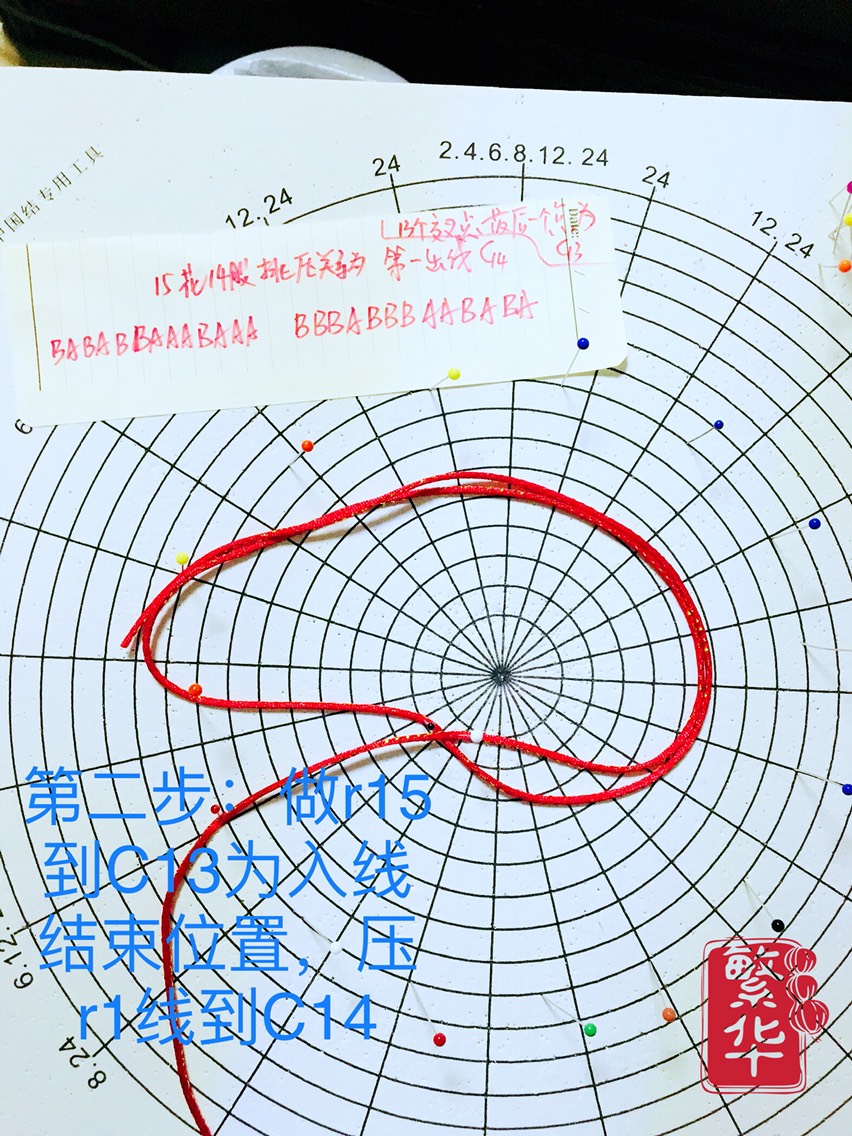 中国结专用工具
12.24
24
2.4.6.8.12.24
24
12.24
13个交叉点,最后一个为
15花14股挑压关系为 第一出线C14 C13
BABABBAAABAAA BBBABBBAABABA
Date:
6
第二步:做r15
到C13为入线
结束位置,压
r1线到C14
6.12.2
8.24
繁华